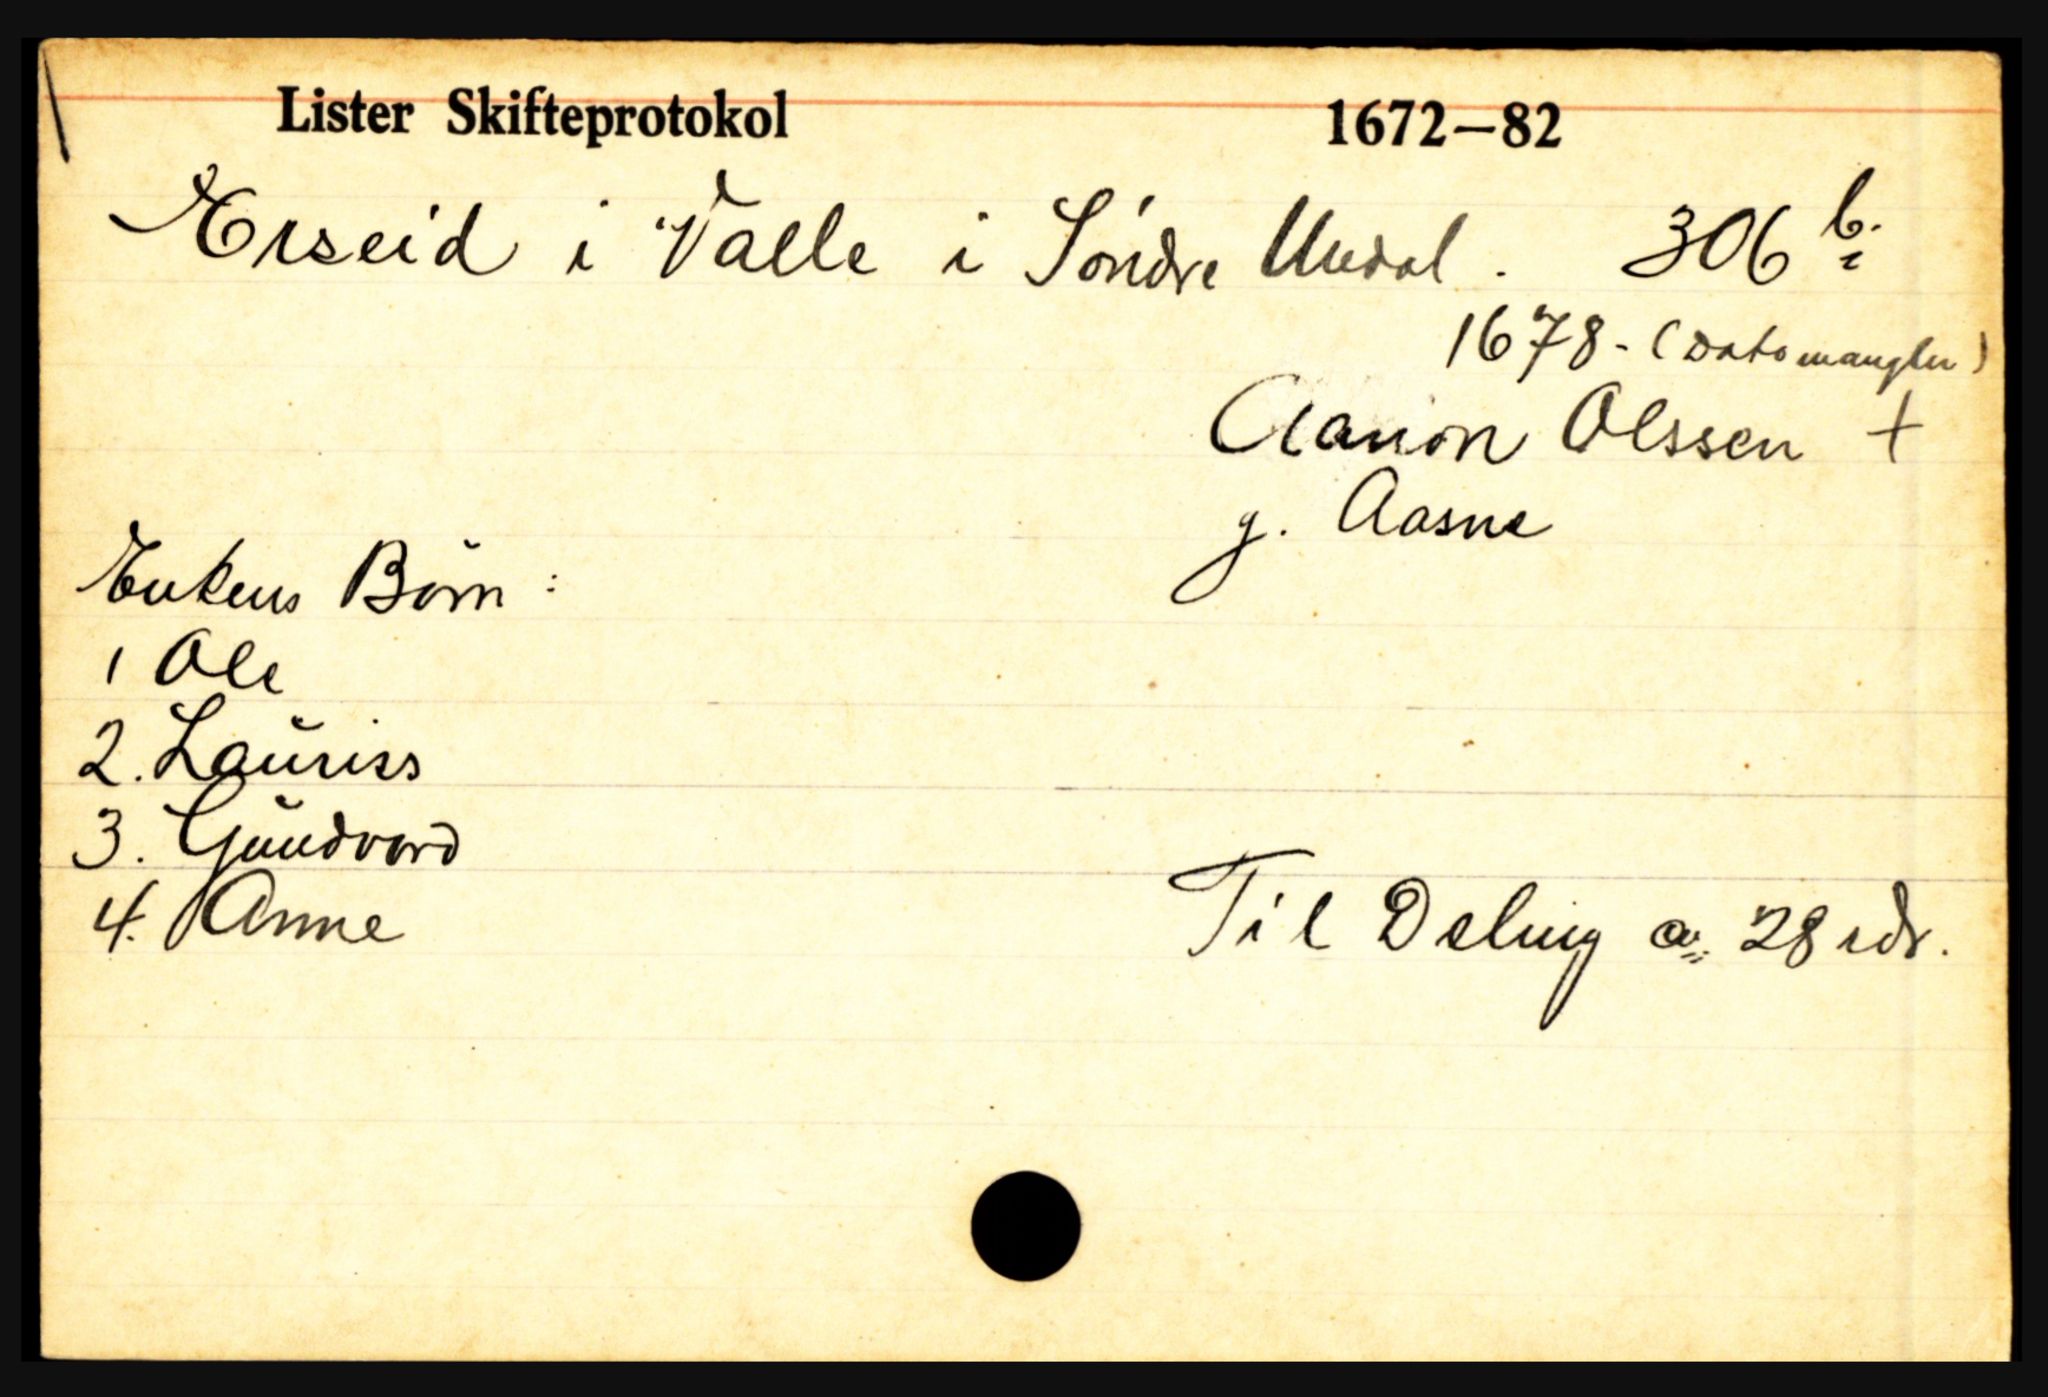 Lister Skifteprotokol 1672—82
Erseid i Valle i Söndre Undal. 306 b.
1678 - (Dato mangler)
Aanon Olssen +
g. Aasne
Enkens Börn:
1 Ole
2. Lauriss
3. Gundvord
4. Anne
Til Deling av 28 rdr.